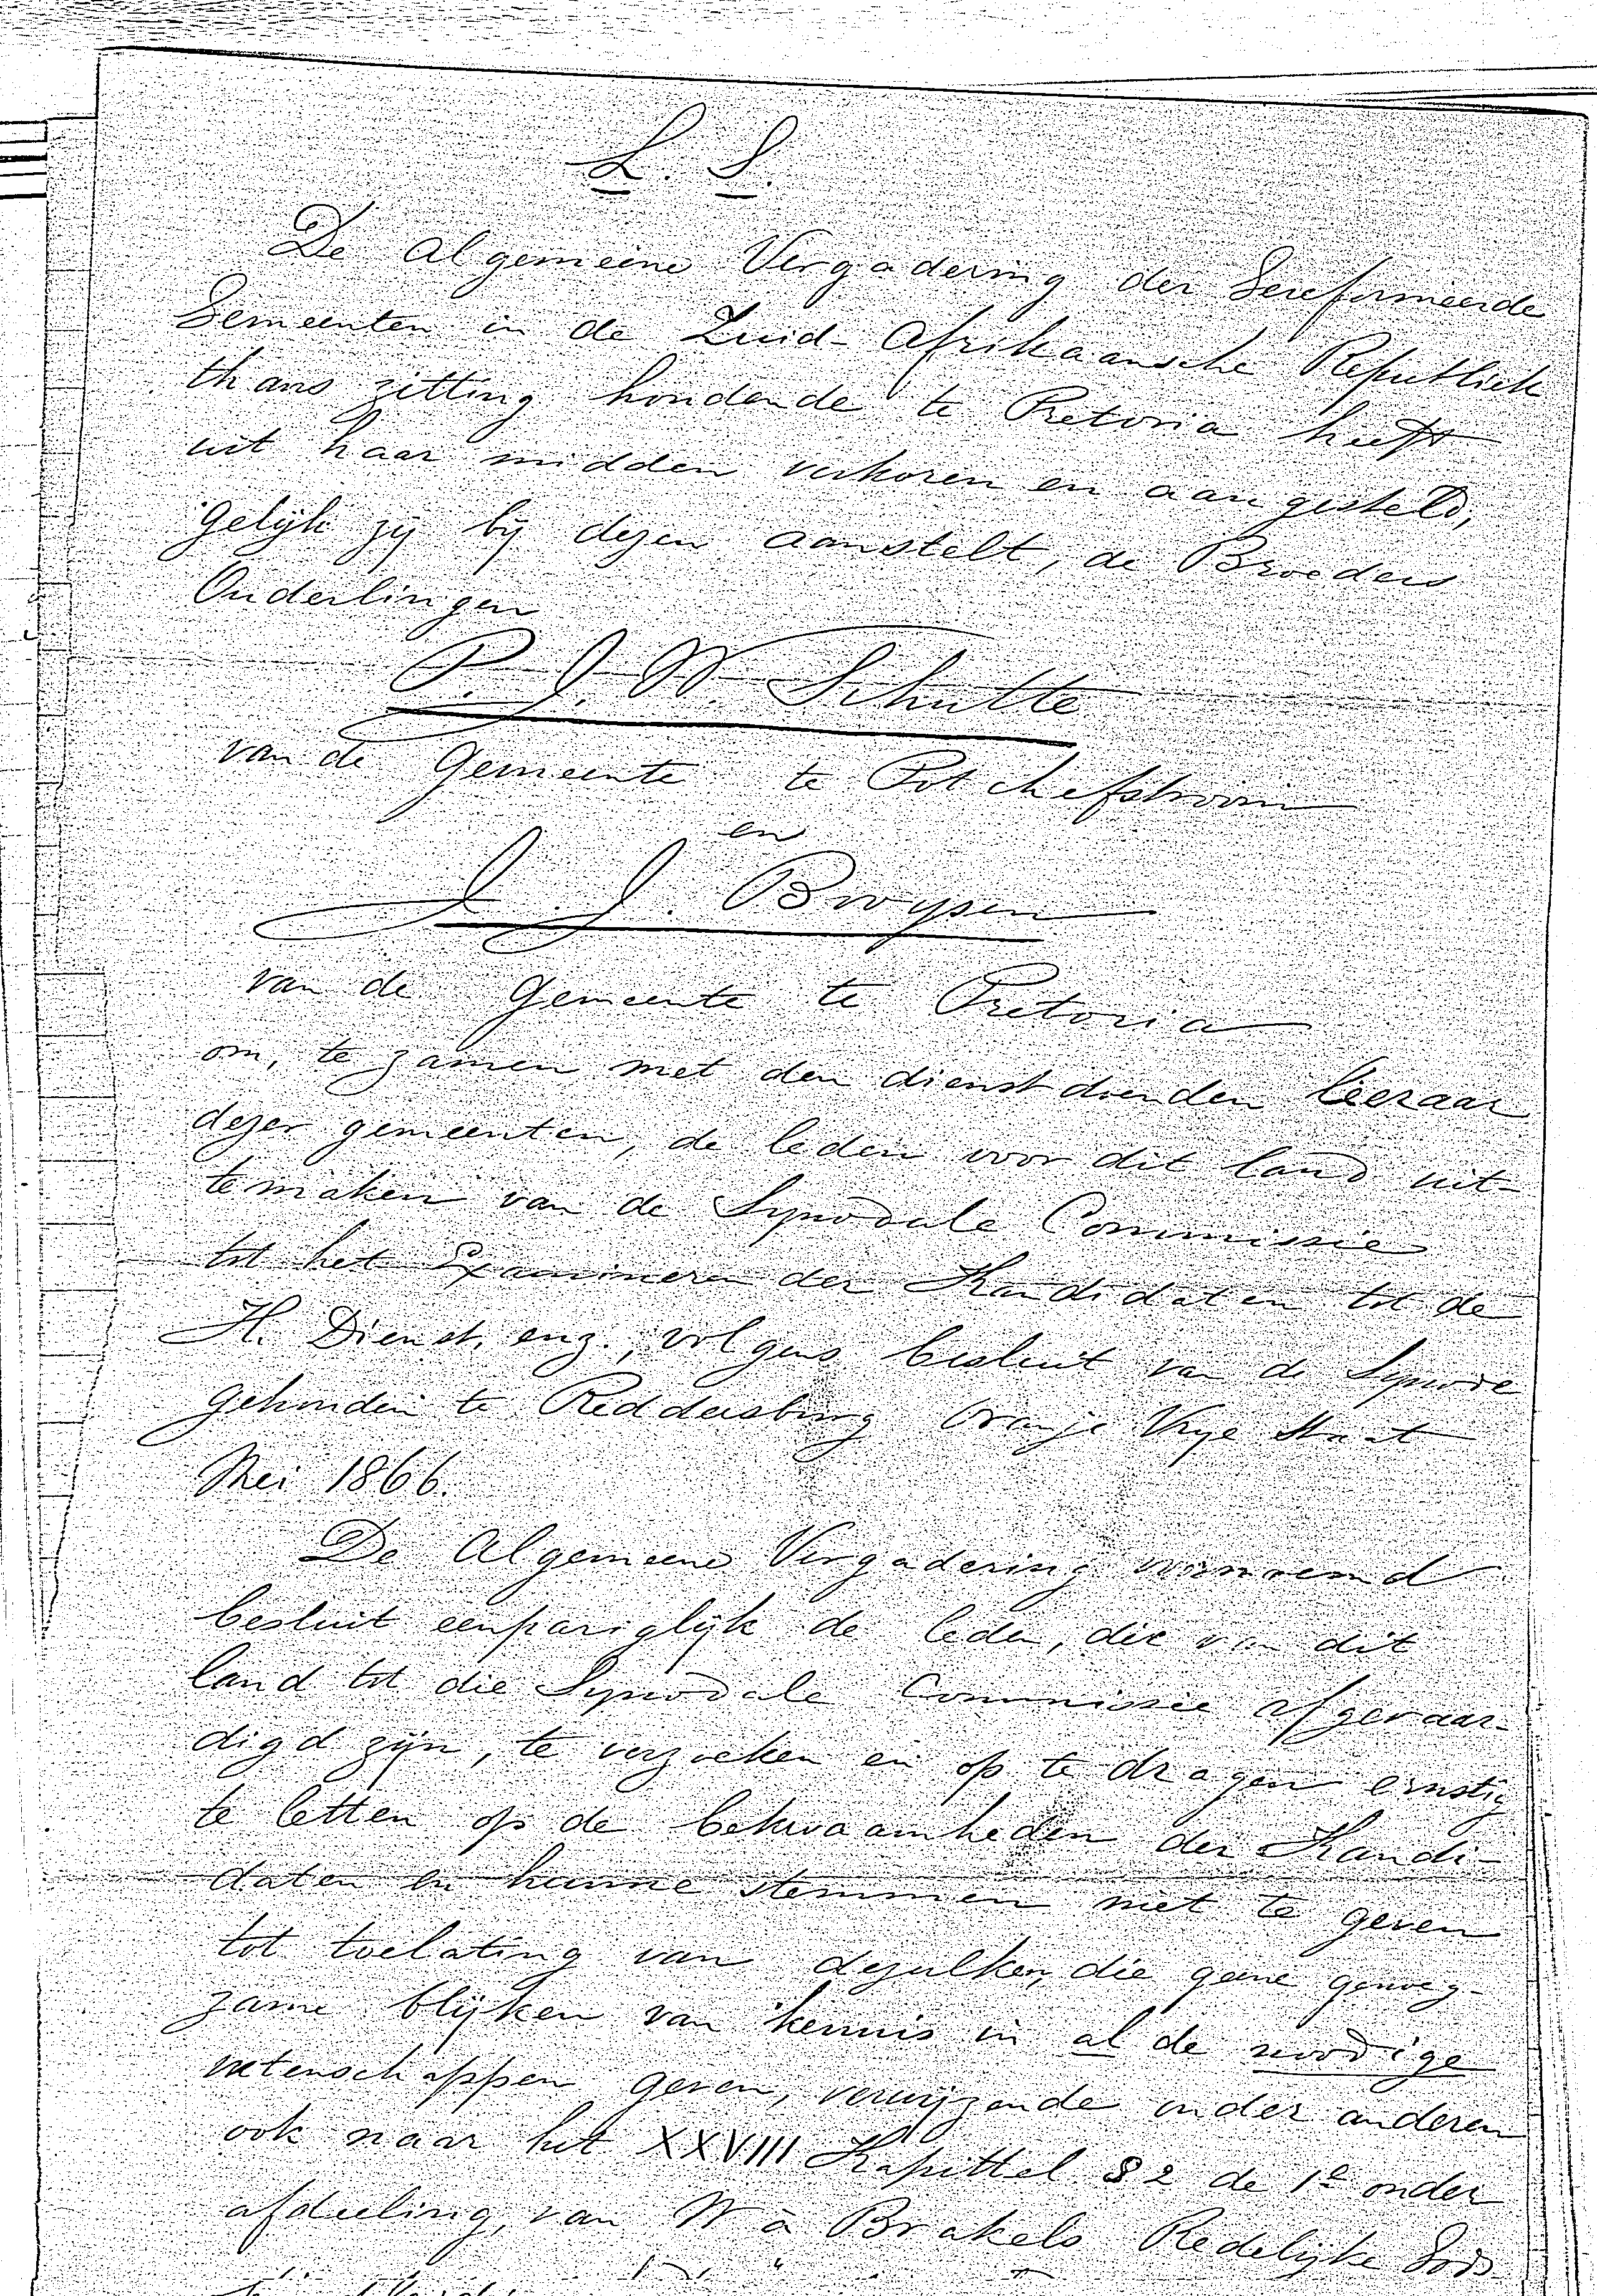 L. S.
De Algemeene Vergadering der Gereformeerde
Gemeenten in de Zuid-Afrikaansche Republiek
thans zitting houdende te Pretoria heeft
uit haar midden verkoren en aangesteld,
gelijk zij bij dezen aanstelt, de Broeders
Ouderlingen
P. J. W. Schutte
van de Gemeente te Potchefstroom
en
J. J. Bruysen
van de Gemeente te Pretoria
om, te zamen met den dienstdoenden leeraar
dezer gemeenten, de leden voor dit land uit-
temaken van de Synodale Commissie
tot het Examineren der Kandidaten tot de
H. Dienst, enz., volgens besluit van de Synode
gehouden te Reddersburg Oranje Vrije Staat
Mei 1866.
De Algemeene Vergadering voornoemd
besluit eenpariglijk de leden, die van dit
land tot die Synodale Commissie afgevaar-
digd zijn, te verzoeken en op te dragen ernstig
te letten op de bekwaamheden der Kandi-
daten en hunne stemmen niet te geven
tot toelating van dezulken, die geene genoeg-
zame blijken van kennis in al de noodige
wetenschappen geven, verwijzende onder anderen
ook naar het XXVIII Kapittel § 2 de 1e onder
afdeeling, van W à Brakels Redelijke Gods